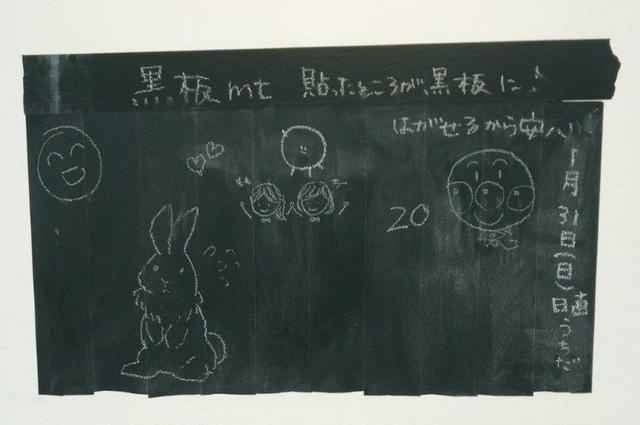 黒板mt 貼ったところが、黒板に♪
はがせるから安心!!
20
1月三日(日)
日直
うちだ